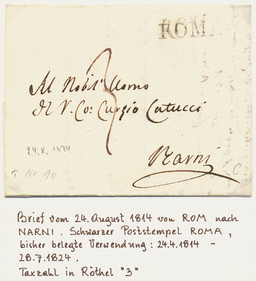 ROMA
Al Nobil Uomo
Il V. Co: Curzio Catucci
3
Narni
24.8.1814
T Nr 10
Brief vom 24. August 1814 von ROM nach
NARNI. Schwarzer Poststempel ROMA,
bisher belegte Verwendung: 24.4.1814 -
28.7.1824.
Taxzahl in Rötel "3"